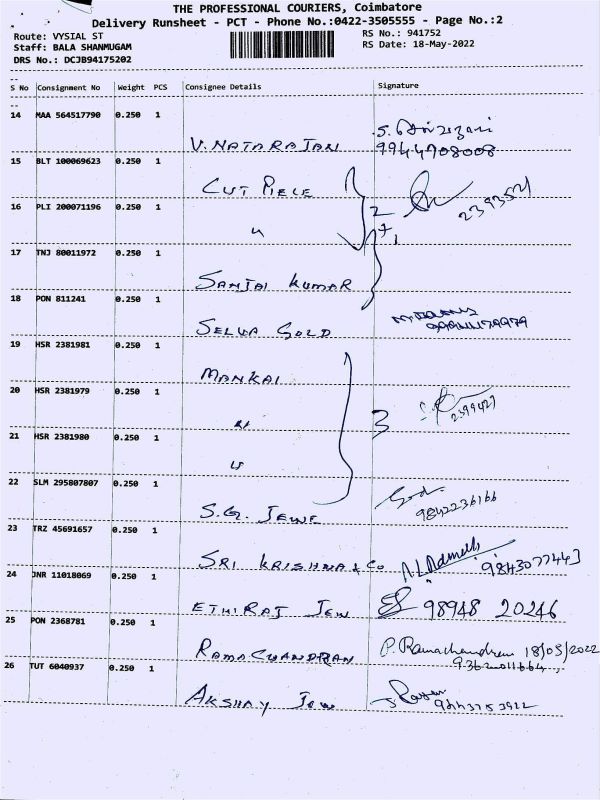 THE PROFESSIONAL COURIERS, Coimbatore
Delivery Runsheet - PCT - Phone No.:0422-3505555 - Page No.:2
Route: VYSIAL ST RS No.: 941752
Staff: BALA SHANMUGAM RS Date: 18-May-2022
DRS No.: DCJB94175202
S No Consignment No Weight PCS Consignee Details Signature
14 MAA 564517790 0.250 1
V. NATARAJAN 9944708008
15 BLT 100069623 0.250 1
CUT PIECE
16 PLI 200071196 0.250 1 2 2393521
" + 1
17 TNJ 80011972 0.250 1
SANJAI KUMAR
18 PON 811241 0.250 1
SELVA GOLD
19 HSR 2381981 0.250 1
MANKAI
20 HSR 2381979 0.250 1
" 3 2399427
21 HSR 2381980 0.250 1
"
22 SLM 295807807 0.250 1
S.G. JEWE 9842236166
23 TRZ 45691657 0.250 1
SRI KRISHNA & CO 9843077443
24 JNR 11018069 0.250 1
ETHIRAJ JEW 98948 20246
25 PON 2368781 0.250 1
RAMACHANDRAN P. Ramachandran 18/05/2022
26 TUT 6040937 0.250 1 9362011664,
AKSHAY JEW 9443753922